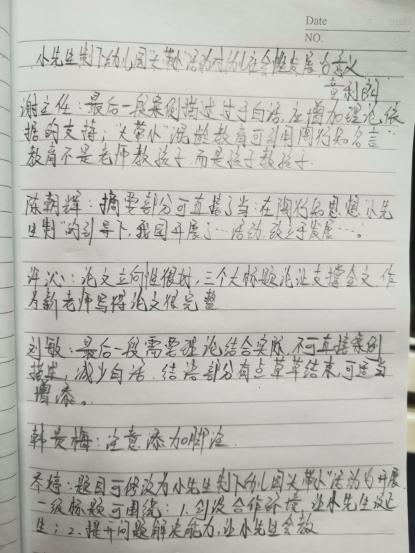 Date
NO.
小先生制下幼儿园"大带小"活动对幼儿社会性发展的意义
章利郎
谢主任:最后一段案例描述过于白话,应增加理论依
据的支持;"大带小"混龄教育可引用陶行知名言:
教育不是老师教孩子,而是孩子教孩子.
陈朝辉:摘要部分可直接了当:在陶行知思想"小先
生制"的引导下,我园开展了…活动,促进了发展…。
论文立向性很好,三个大标题论证支撑全文,作
为新老师写得论文很完整
刘敏:最后一段需要理论结合实际,不可直接案例
描述,减少白话.结语部分有点草草结束,可适当
增添。
韩景梅:注意添加脚注.
乔婷:题目可修改为小先生制下幼儿园"大带小"活动的开展
二级标题可围绕:1.创设合作环境,让小先生
生;2.提升问题解决能力,让小先生会教